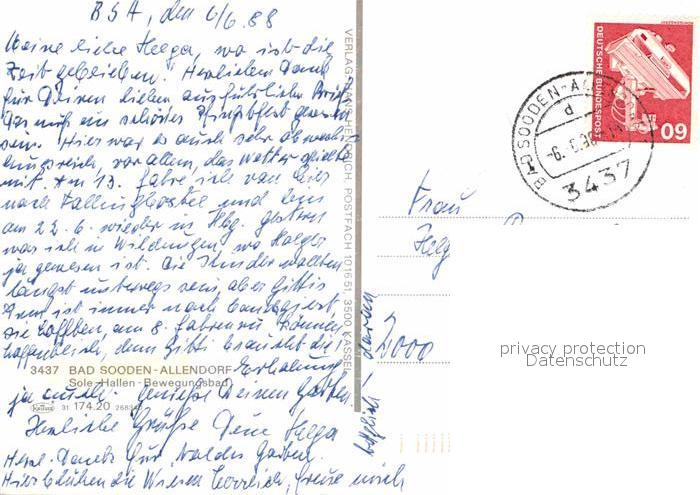 BSA, den 6/6.88
Meine liebe Helga, wo ist die
Zeit geblieben. Herzlichen Dank
für Deinen lieben ausführlichen Brief.
ein schönes Pfingstfest
Hier war es auch sehr abwechs-
lungsreich, vor allem, das Wetter spielte
mit. Am 13. fahre ich von hier
nach Fallingbostel und bin
am 22.6. wieder in Hbg. Gestern
war ich in Wildungen, wo Holger
ja gewesen ist. Die Kinder wollten
längst unterwegs sein, aber Gittis
Arm ist immer noch bandagiert,
sie hoffen, am 8. fahren zu können
hoffentlich, denn Gitti braucht die
Erholung
ja auch. Genieße Deinen Garten
Herzliche Grüße Deine Helga
Herzl. Dank für
Hier blühen die Wiesen herrlich, freue mich
täglich daran
3437 BAD SOODEN-ALLENDORF
Sole-Hallen-Bewegungsbad
31 174.20
POSTFACH 1015 51, 3500 KASSEL
DEUTSCHE BUNDESPOST
60
BAD SOODEN-
d
3437
Frau
Helg
2000
privacy protection
Datenschutz